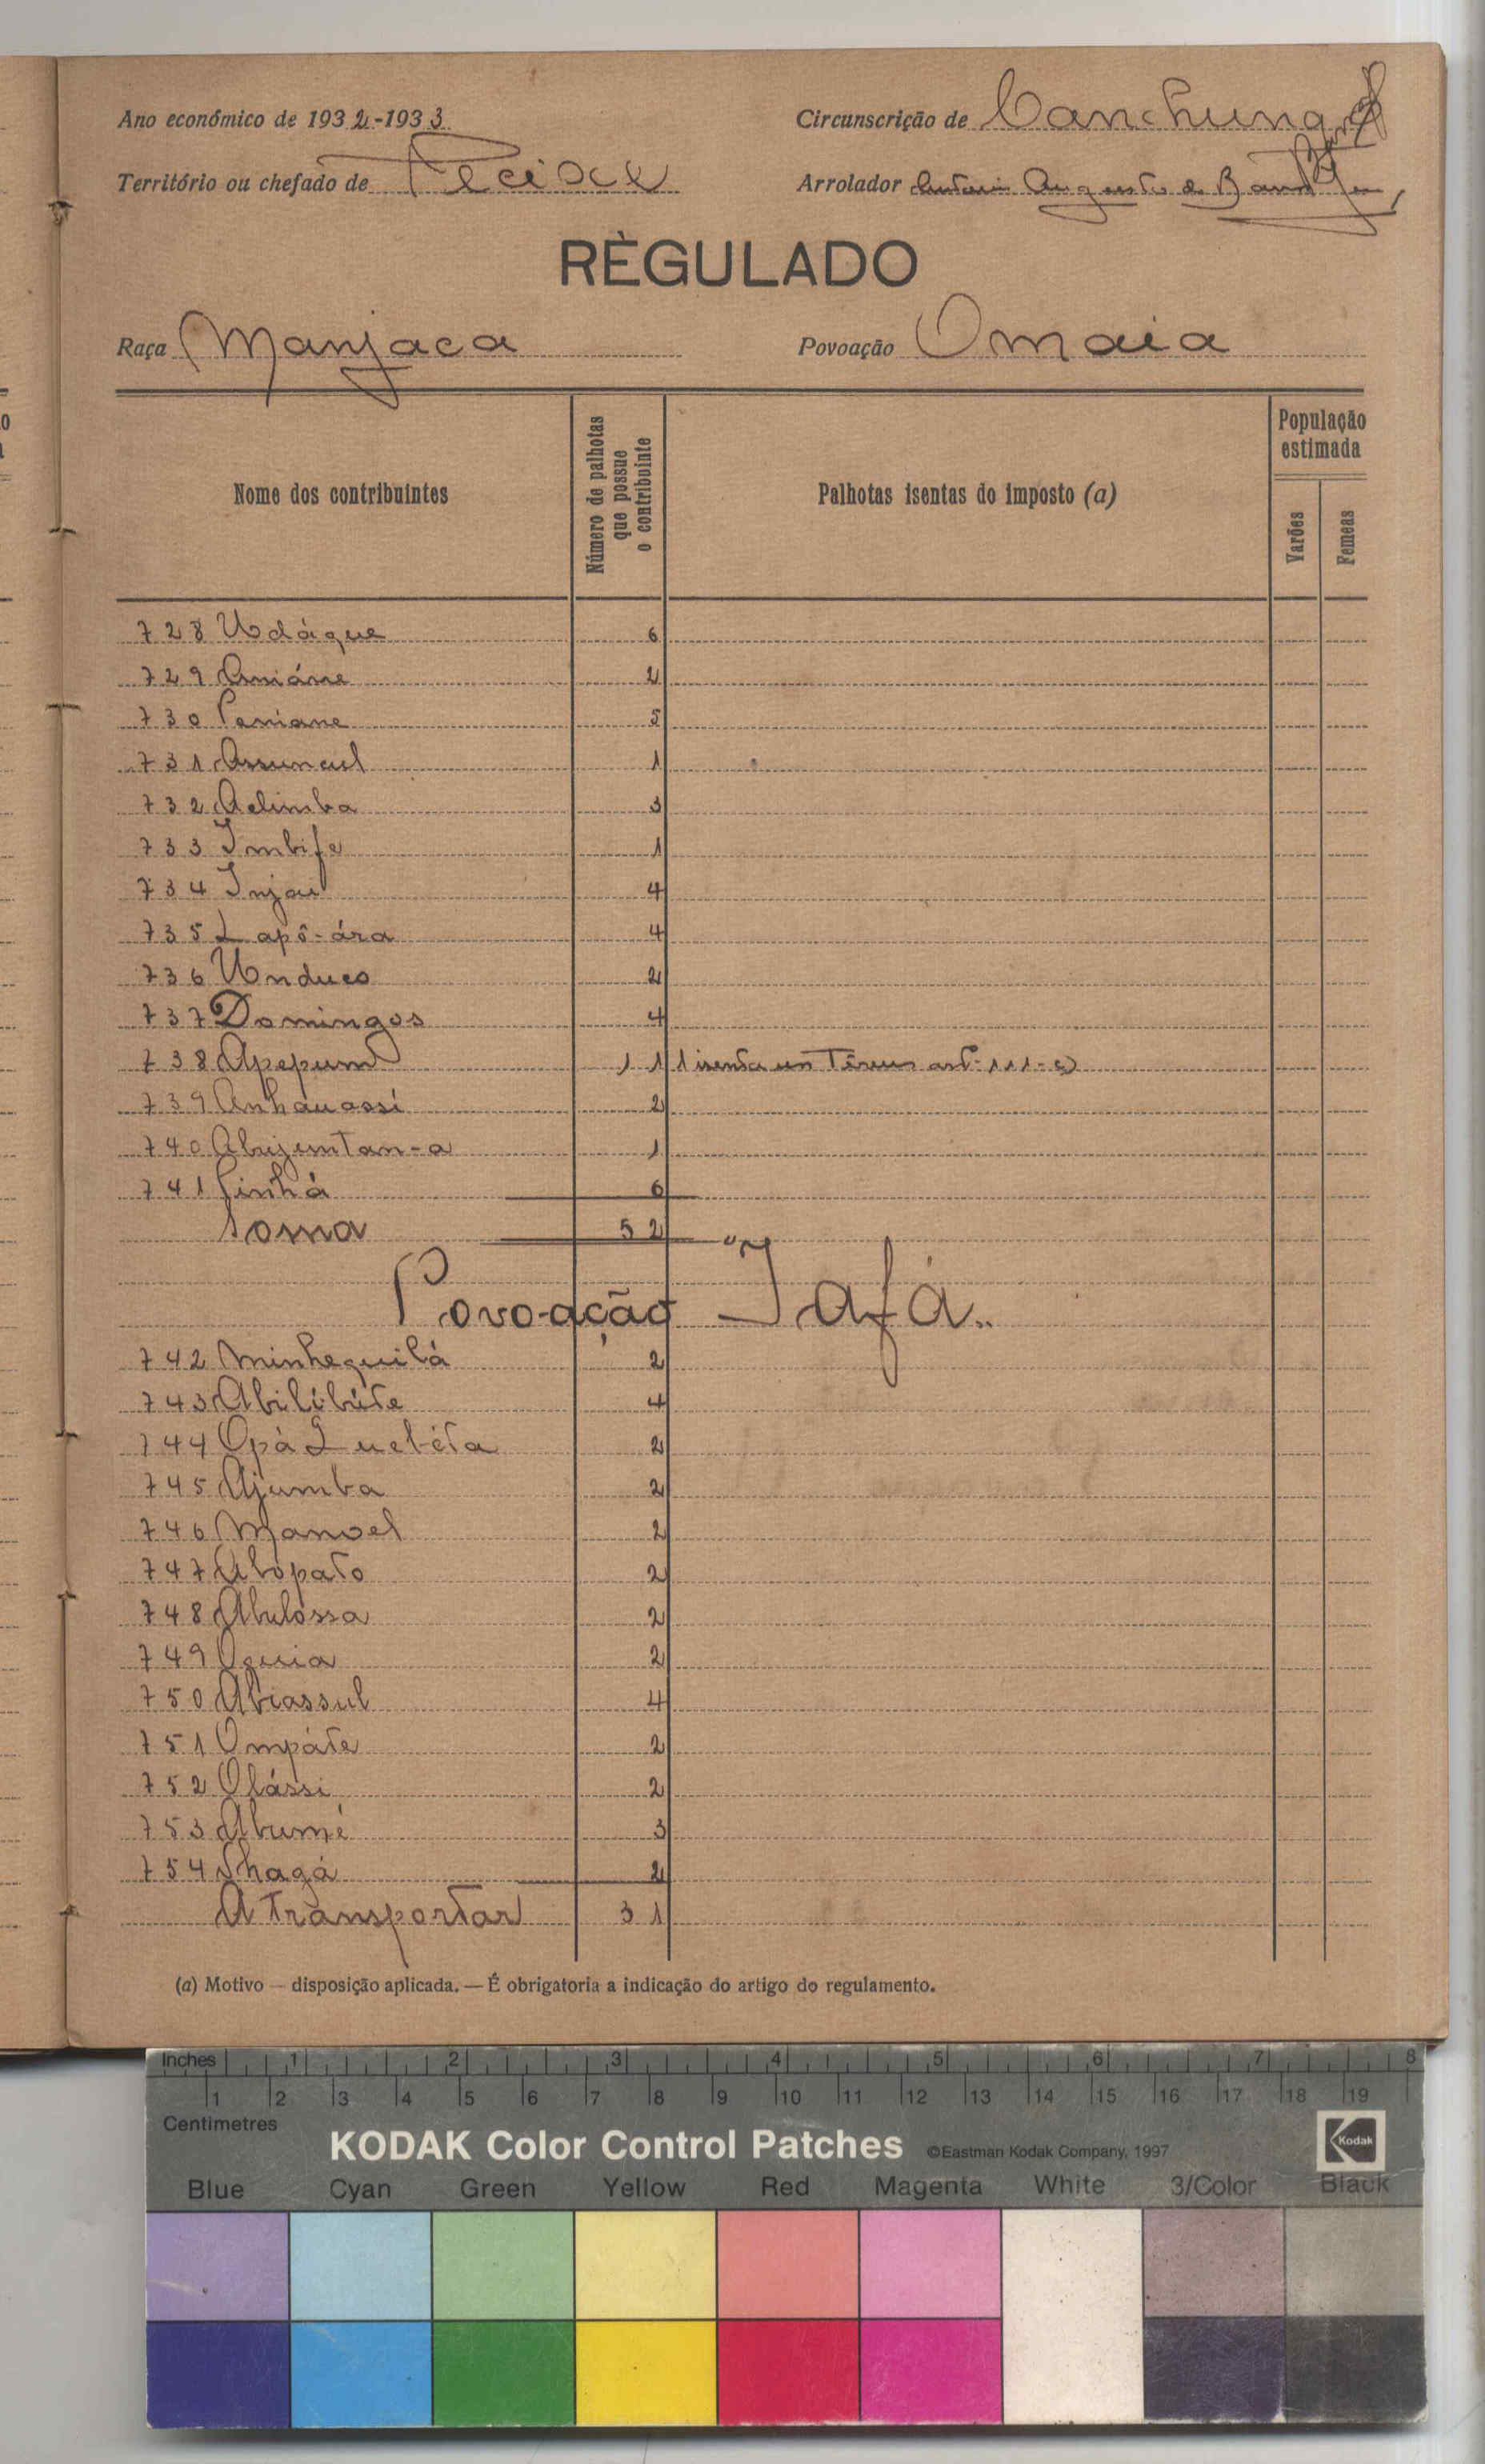 Ano económico de 1932-1933
Circunscrição de Canchungo
Território ou chefado de Pecixe
Arrolador Antonio Augusto de
RÈGULADO
Raça Manjaca
Povoação Omaia
Nome dos contribuintes
Número de palhotas que possue o contribuinte
Palhotas isentas do imposto (a)
População estimada
Varões
Femeas
728 Udáque 6
729 Amiáne 2
730 Peniane 5
731 Assuncul 1
732 Aclimba 3
733 Imbife 1
734 Injau 4
735 Lapô-ára 4
736 Unduco 2
737 Domingos 4
738 Apepum 11 1 isenta un art. 111-
739 Anhauassi 2
740 Abujuntan-a 1
741 Pinhá 6
Soma 52
Povoação Jafá..
742 Minhequilá 2
743 Abilibúte 4
744 Opá Luebéta 2
745 Ajumba 2
746 Manoel 2
747 Abópato 2
748 Abulóssa 2
749 Oquia 2
750 Abiassul 4
751 Ompáte 2
752 Olássi 2
753 Abumé 3
754 Nhagá 2
A Transportar 31
(a) Motivo — disposição aplicada. — É obrigatoria a indicação do artigo do regulamento.
Inches 1 2 3 4 5 6 7 8
1 2 3 4 5 6 7 8 9 10 11 12 13 14 15 16 17 18 19
Centimetres
KODAK Color Control Patches ©Eastman Kodak Company, 1997 Kodak
Blue Cyan Green Yellow Red Magenta White 3/Color Black